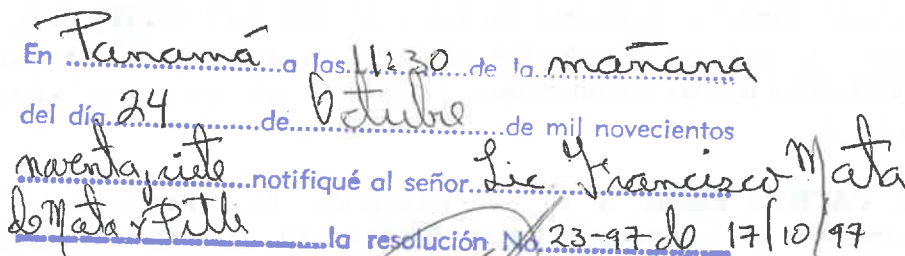 En Panamá a las 11:30 de la mañana
del día 24 de Octubre de mil novecientos
noventa y siete notifiqué al señor Lic. Francisco Mata
de Mata y Pitti la resolución No. 23-97 de 17/10/97